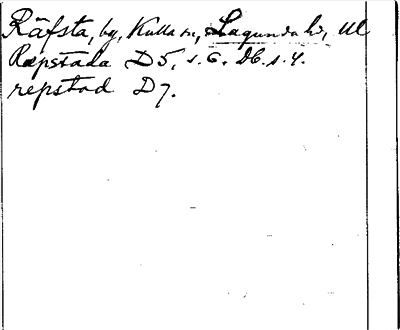 Räfsta, by, Kulla sn, Lagunda hd, Ul
Ræpstada D5, s. 6. Db. s. 4.
repstad D7.